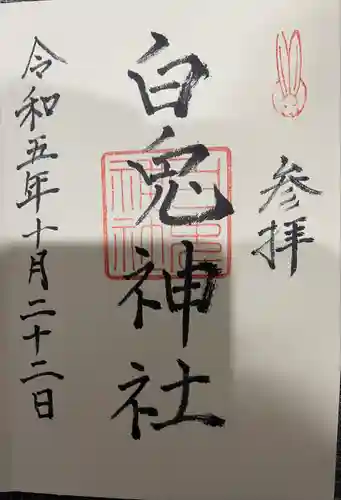 参拝
白兔神社
令和五年十月二十二日